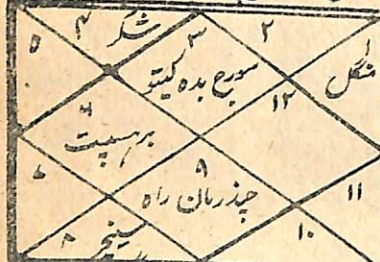 ۴ شکر ۲
۵ ۳ ۱
سورج بدہ کیتو منگل
۶ ۱۲
برہسپت
۷ ۹
چندرمان راہ ۱۱
۸ سنیچر ۱۰